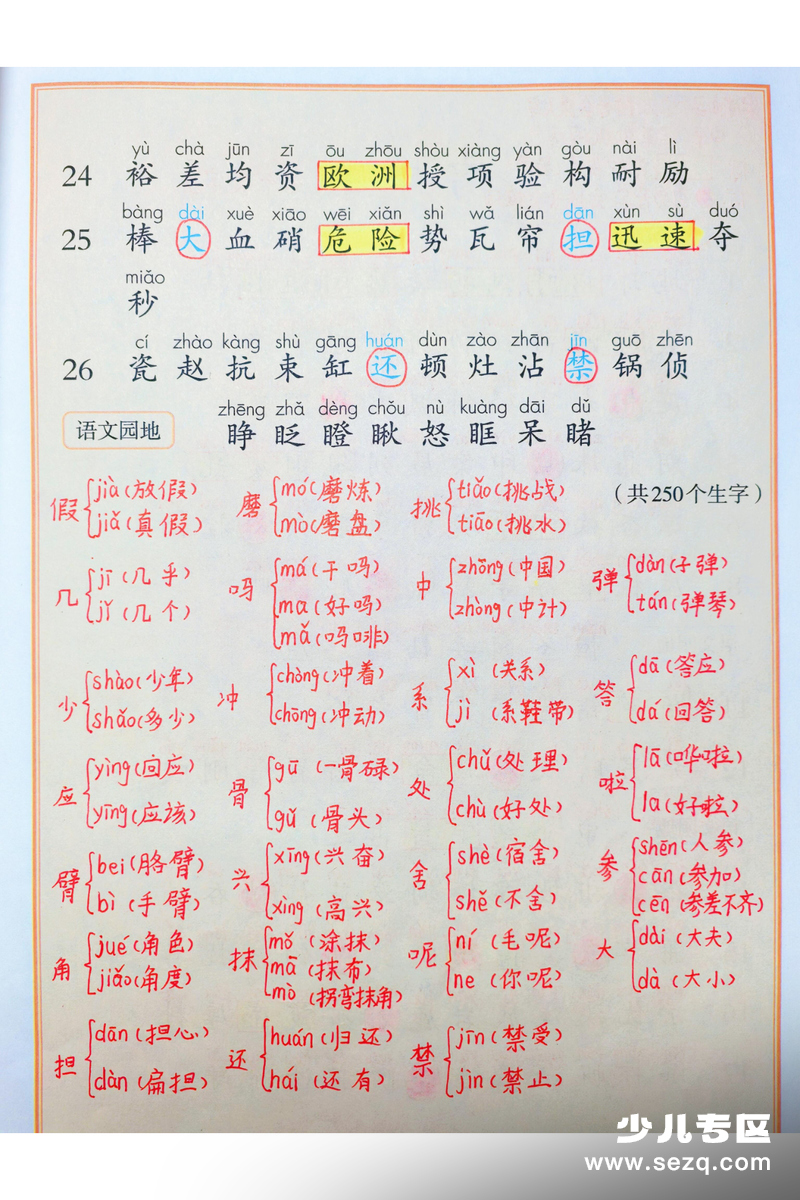 yù chà jūn zī ōu zhōu shòu xiàng yàn gòu nài lì
24 裕 差 均 资 欧 洲 授 项 验 构 耐 励
bàng dài xuè xiāo wēi xiǎn shì wǎ lián dān xùn sù duó
25 棒 大 血 硝 危 险 势 瓦 帘 担 迅 速 夺
miǎo
秒
cí zhào kàng shù gāng huán dùn zào zhān jīn guō zhēn
26 瓷 赵 抗 束 缸 还 顿 灶 沾 禁 锅 侦
zhēng zhǎ dèng chǒu nù kuàng dāi dǔ
语文园地 睁 眨 瞪 瞅 怒 眶 呆 睹
（共250个生字）
假 jià(放假) jiǎ(真假)
磨 mó(磨炼) mò(磨盘)
挑 tiǎo(挑战) tiāo(挑水)
几 jī(几乎) jǐ(几个)
吗 má(干吗) ma(好吗) mǎ(吗啡)
中 zhōng(中国) zhòng(中计)
弹 dàn(子弹) tán(弹琴)
少 shào(少年) shǎo(多少)
冲 chòng(冲着) chōng(冲动)
系 xì(关系) jì(系鞋带)
答 dā(答应) dá(回答)
应 yìng(回应) yīng(应该)
骨 gū(一骨碌) gǔ(骨头)
处 chǔ(处理) chù(好处)
啦 lā(哗啦) la(好啦)
臂 bei(胳臂) bì(手臂)
兴 xīng(兴奋) xìng(高兴)
舍 shè(宿舍) shě(不舍)
参 shēn(人参) cān(参加) cēn(参差不齐)
角 jué(角色) jiǎo(角度)
抹 mǒ(涂抹) mā(抹布) mò(拐弯抹角)
呢 ní(毛呢) ne(你呢)
大 dài(大夫) dà(大小)
担 dān(担心) dàn(扁担)
还 huán(归还) hái(还有)
禁 jīn(禁受) jìn(禁止)
少儿专区
www.sezq.com